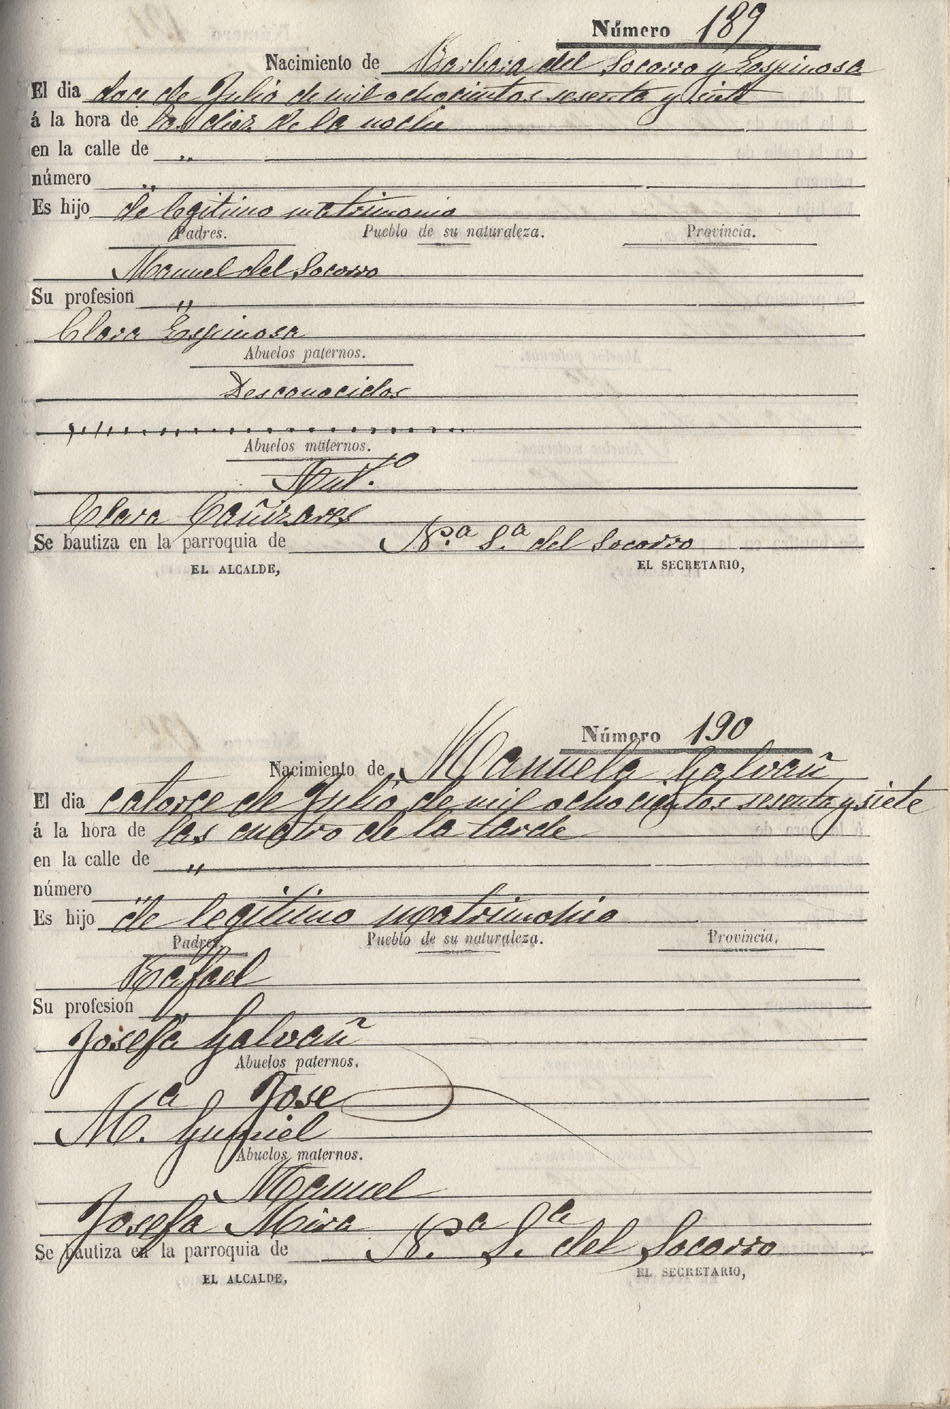 Número 189
Nacimiento de Barbara del Socorro y Espinosa
El dia doce de Julio de mil ochocientos sesenta y siete
á la hora de las diez de la noche
en la calle de „
número „
Es hijo de legitimo matrimonio
Padres. Pueblo de su naturaleza. Provincia.
Manuel del Socorro
Su profesion „
Clara Espinosa
Abuelos paternos.
Desconocidos
Abuelos maternos.
Ant.º
Clara Cañizares
Se bautiza en la parroquia de N.ª S.ª del Socorro
EL ALCALDE, EL SECRETARIO,
Número 190
Nacimiento de Manuela Galvañ
El dia catorce de Julio de mil ochocientos sesenta y siete
á la hora de las cuatro de la tarde
en la calle de „
número „
Es hijo de legitimo matrimonio
Padres. Pueblo de su naturaleza. Provincia.
Rafael
Su profesion „
Josefa Galvañ
Abuelos paternos.
Jose
M.ª Gumiel
Abuelos maternos.
Manuel
Josefa Mira
Se bautiza en la parroquia de N.ª S.ª del Socorro
EL ALCALDE, EL SECRETARIO,